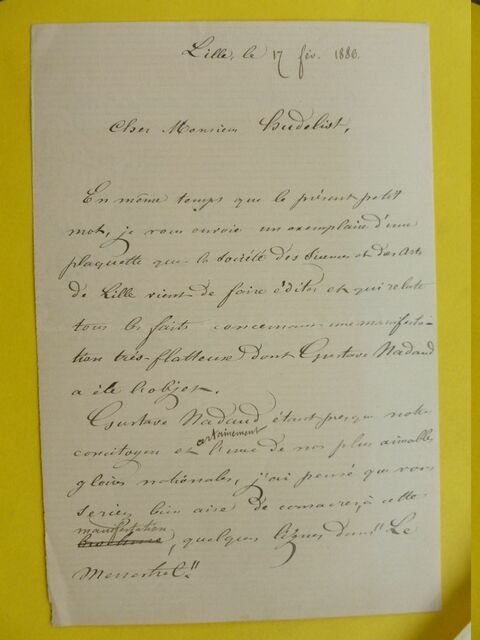 Lille, le 17 fév. 1880.
Cher Monsieur Hudelist,
En même temps que le présent petit
mot, je vous envoie un exemplaire d'une
plaquette que la Société des Sciences et des Arts
de Lille vient de faire éditer et qui relate
tous les faits concernant une manifesta-
tion très-flatteuse dont Gustave Nadaud
a été l'objet.
Gustave Nadaud étant presque notre
concitoyen et certainement l'une de nos plus aimables
gloires nationales, j'ai pensé que vous
seriez bien aise de consacrer, à cette
manifestation
brochure, quelques lignes dans "Le
Menestrel."